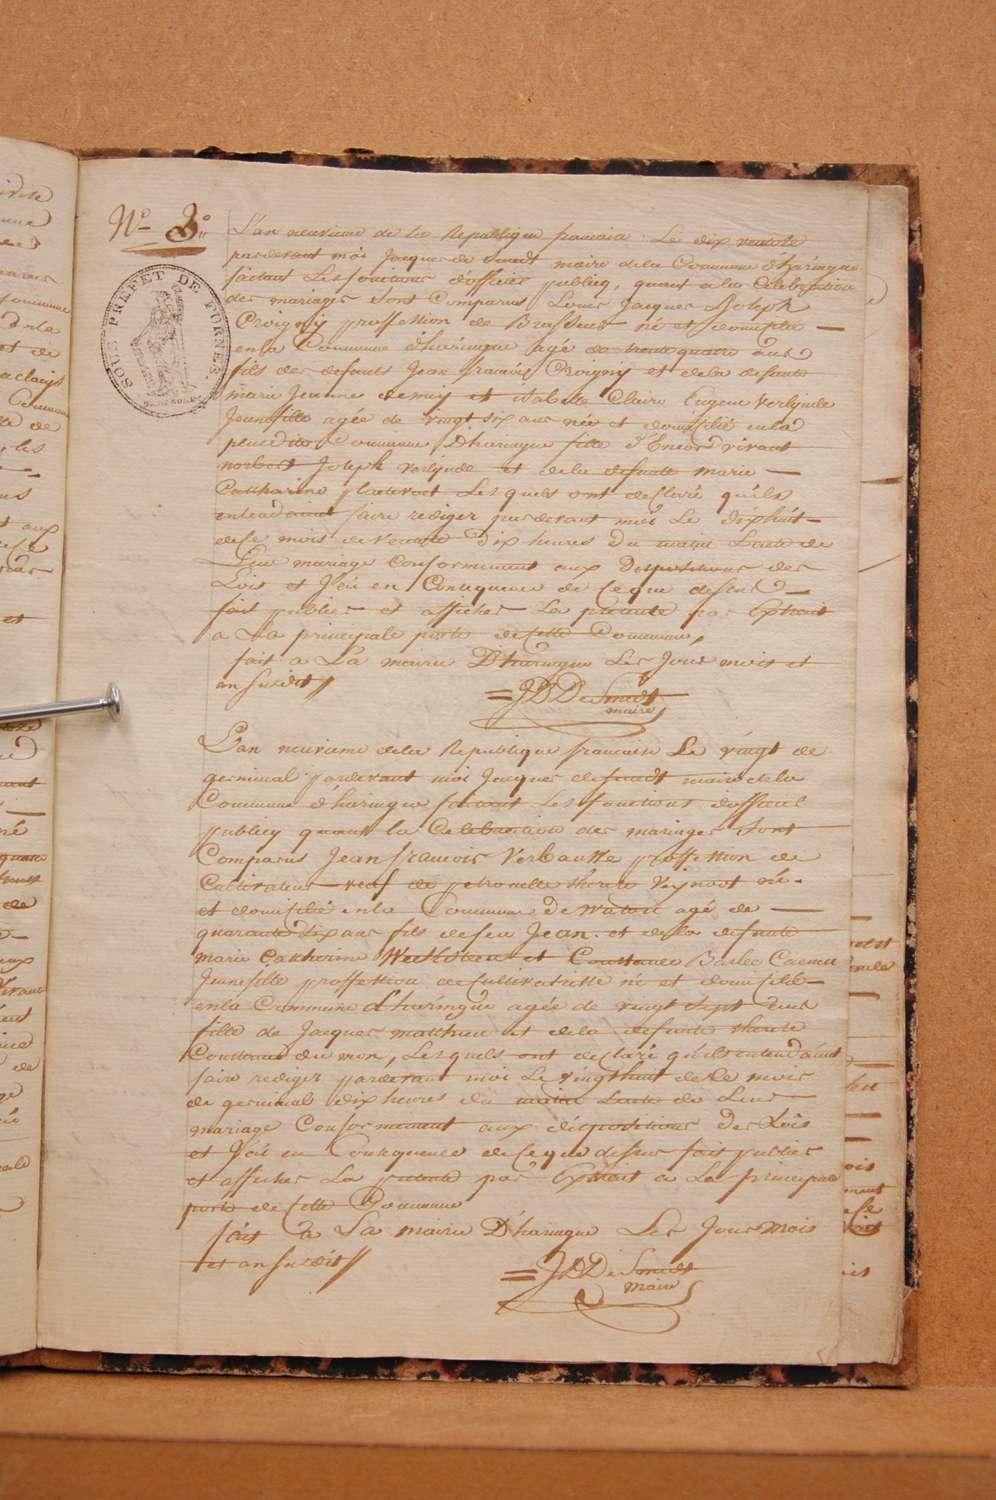 N.º 3.º
SOUS PREFET DE FURNES.
L'an neuvieme de la Republique francaise Le dix ventose
pardevant moi Jacques de Smedt maire dela Commune d'haringue
faisant Les fonctions d'officier publicq, quant a la Celebration
des mariages sont Comparus Louis Jacques Joseph
Croigny proffession de Brasseur né et domicilié
en la Commune d'haringue agé de trente quatre ans
fils des defunts Jean francois Croigny et dela defunte
marie Jeanne et isabelle Claire Eugene verlynde
Jeune fille agée de vingt six ans née et domicilié en la
Commune D'haringue fille d'Encor vivant
norbert Joseph verlynde et dela defunte marie
Catharine Lesquels ont declaré qu'ils
entendaient faire rediger pardevant moi Le dixhuit
de Ce mois de ventose dix heures du matin L'acte de
Leur mariage Conformement aux Dispositions des
Lois et J'ai en Consequence de Ce que dessus
fait publier et afficher La presente par Extrait
a La principale porte de Cette Commune,
fait a La mairie D'haringue Les Jour mois et
an susdit //
= JDDe Smedt
maire
L'an neuvieme dela Republique francaise Le vingt de
germinal pardevant moi Jacques desmedt maire dela
Commune d'haringue faisant Les fonctions d'officier
publicq quant la Celebration des mariages sont
Comparus Jean francois Verbausse proffession de
Cultivateur veuf de petronelle therese né
et domicilié en la Commune De watou agé de
quarante six ans fils de feu Jean et dela defunte
marie Catherine et Constance Barbe
Jeune fille proffession de Cultivatrisse né et domicilié
en la Commune d'haringue agée de vingt sept ans
fille de Jacques matthieu et dela defunte therese
Constance du mon, Lesquels ont declaré qu'ils entendaient
faire rediger pardevant moi Le vingthuit de Ce mois
de germinal dix heures du matin L'acte de Leur
mariage Conformement aux dispositions des Lois
et J'ai en Consequence de Ce que dessus fait publier
et afficher La presente par Extrait a La principale
porte de Cette Commune
fait a La mairie D'haringue Les Jour mois
et an susdit //
= JDDe Smedt
maire